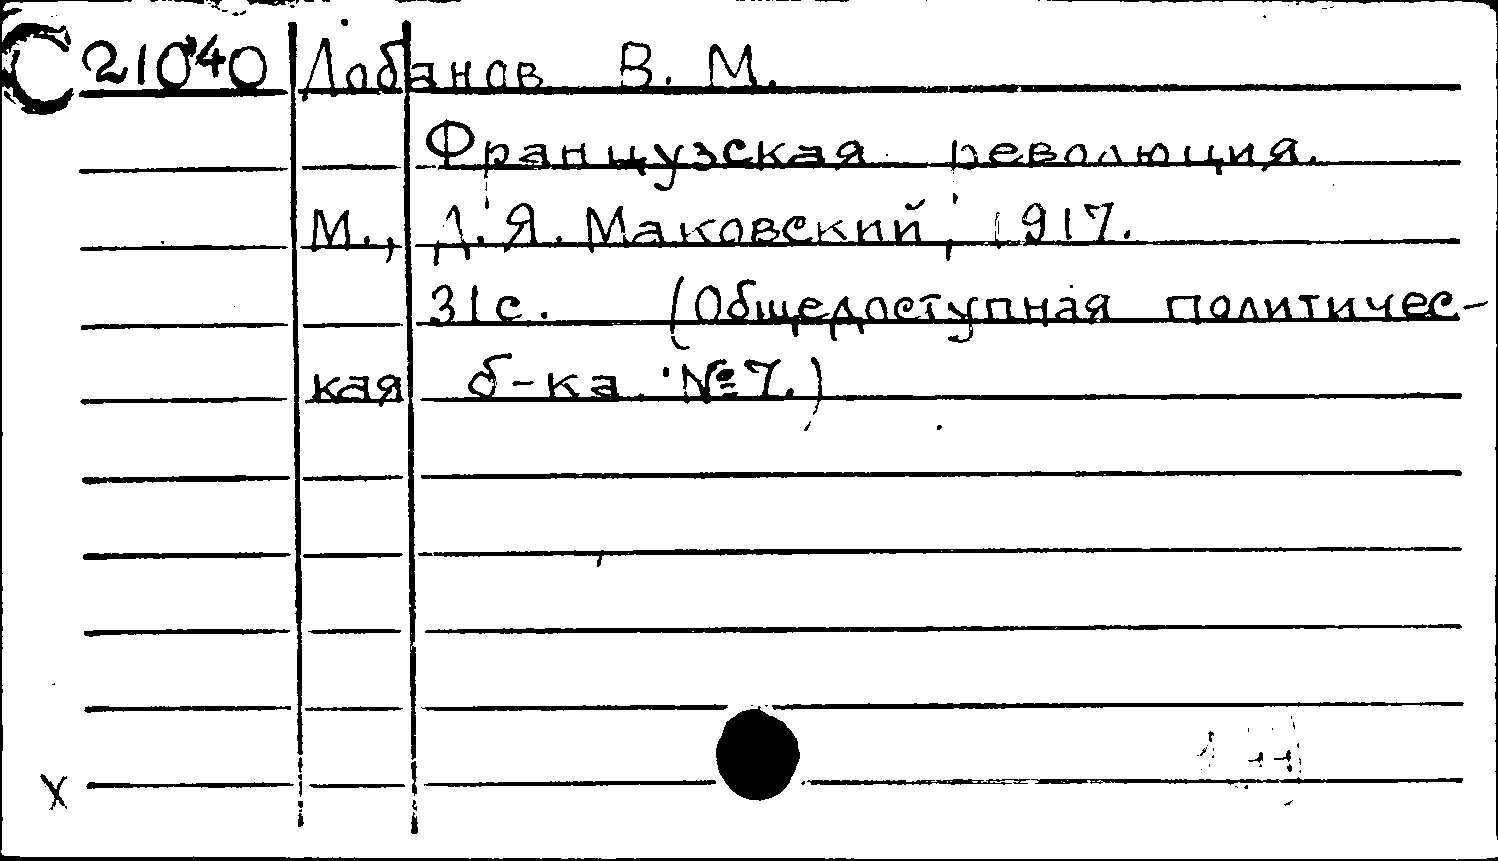 С 21040 Лобанов В. М.
Французская революция.
М., Д. Я. Маковский, 1917.
31с. (Общедоступная политичес-
кая б-ка. № 7.)
х